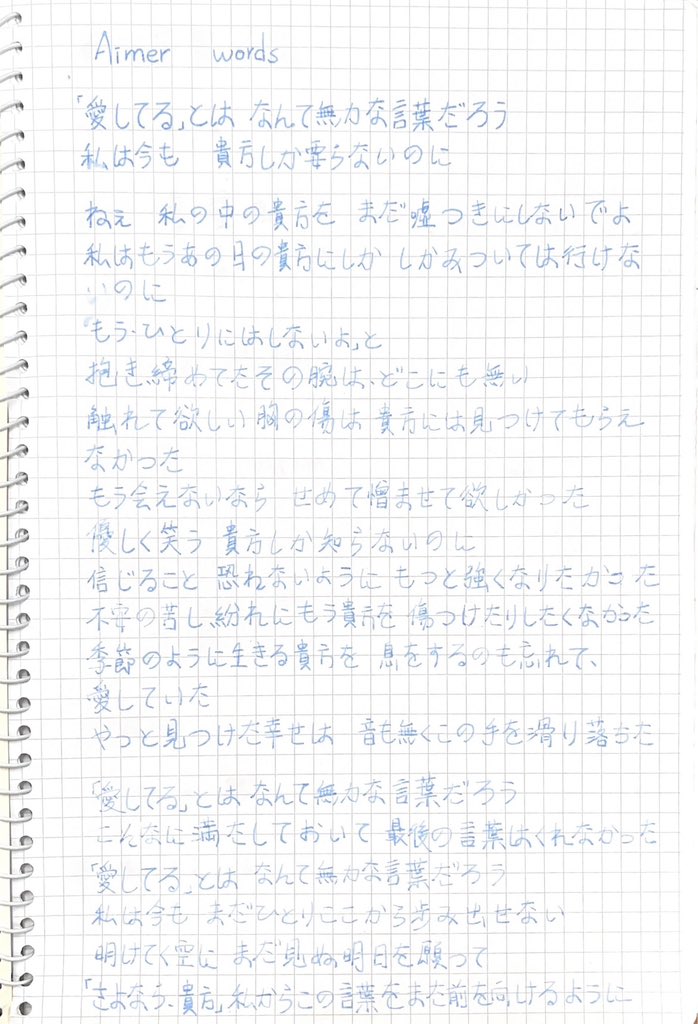 Aimer words
「愛してる」とは なんて無力な言葉だろう
私は今も 貴方しか要らないのに
ねぇ 私の中の貴方を まだ嘘つきにしないでよ
私はもうあの日の貴方にしか しがみついては行けな
いのに
「もう、ひとりにはしないよ」と
抱き締めてたその腕は、どこにも無い
触れて欲しい胸の傷は 貴方には見つけてもらえ
なかった
もう会えないなら せめて憎ませて欲しかった
優しく笑う 貴方しか知らないのに
信じること 恐れないように もっと強くなりたかった
不安の苦し紛れにもう貴方を 傷つけたりしたくなかった
季節のように生きる貴方を 息をするのも忘れて、
愛していた
やっと見つけた幸せは 音も無くこの手を滑り落ちた
「愛してる」とは なんて無力な言葉だろう
こんなに満たしておいて 最後の言葉はくれなかった
「愛してる」とは なんて無力な言葉だろう
私は今も まだひとりここから歩み出せない
明けてく空に まだ見ぬ明日を願って
「さよなら、貴方」私からこの言葉をまた前を向けるように